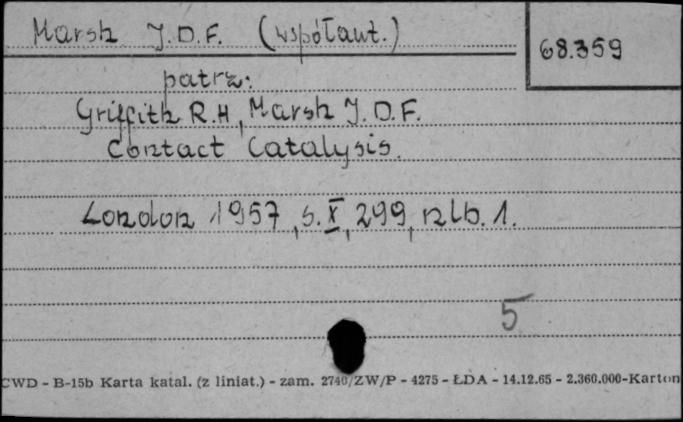 Marsh J.D.F. (współaut.)
68.359
patrz:
Griffith R.H, Marsh J.D.F.
Contact Catalysis.
London 1957, s. X, 299, nlb. 1.
5
CWD - B-15b Karta katal. (z liniat.) - zam. 2740/ZW/P - 4275 - ŁDA - 14.12.65 - 2.360.000-Karton